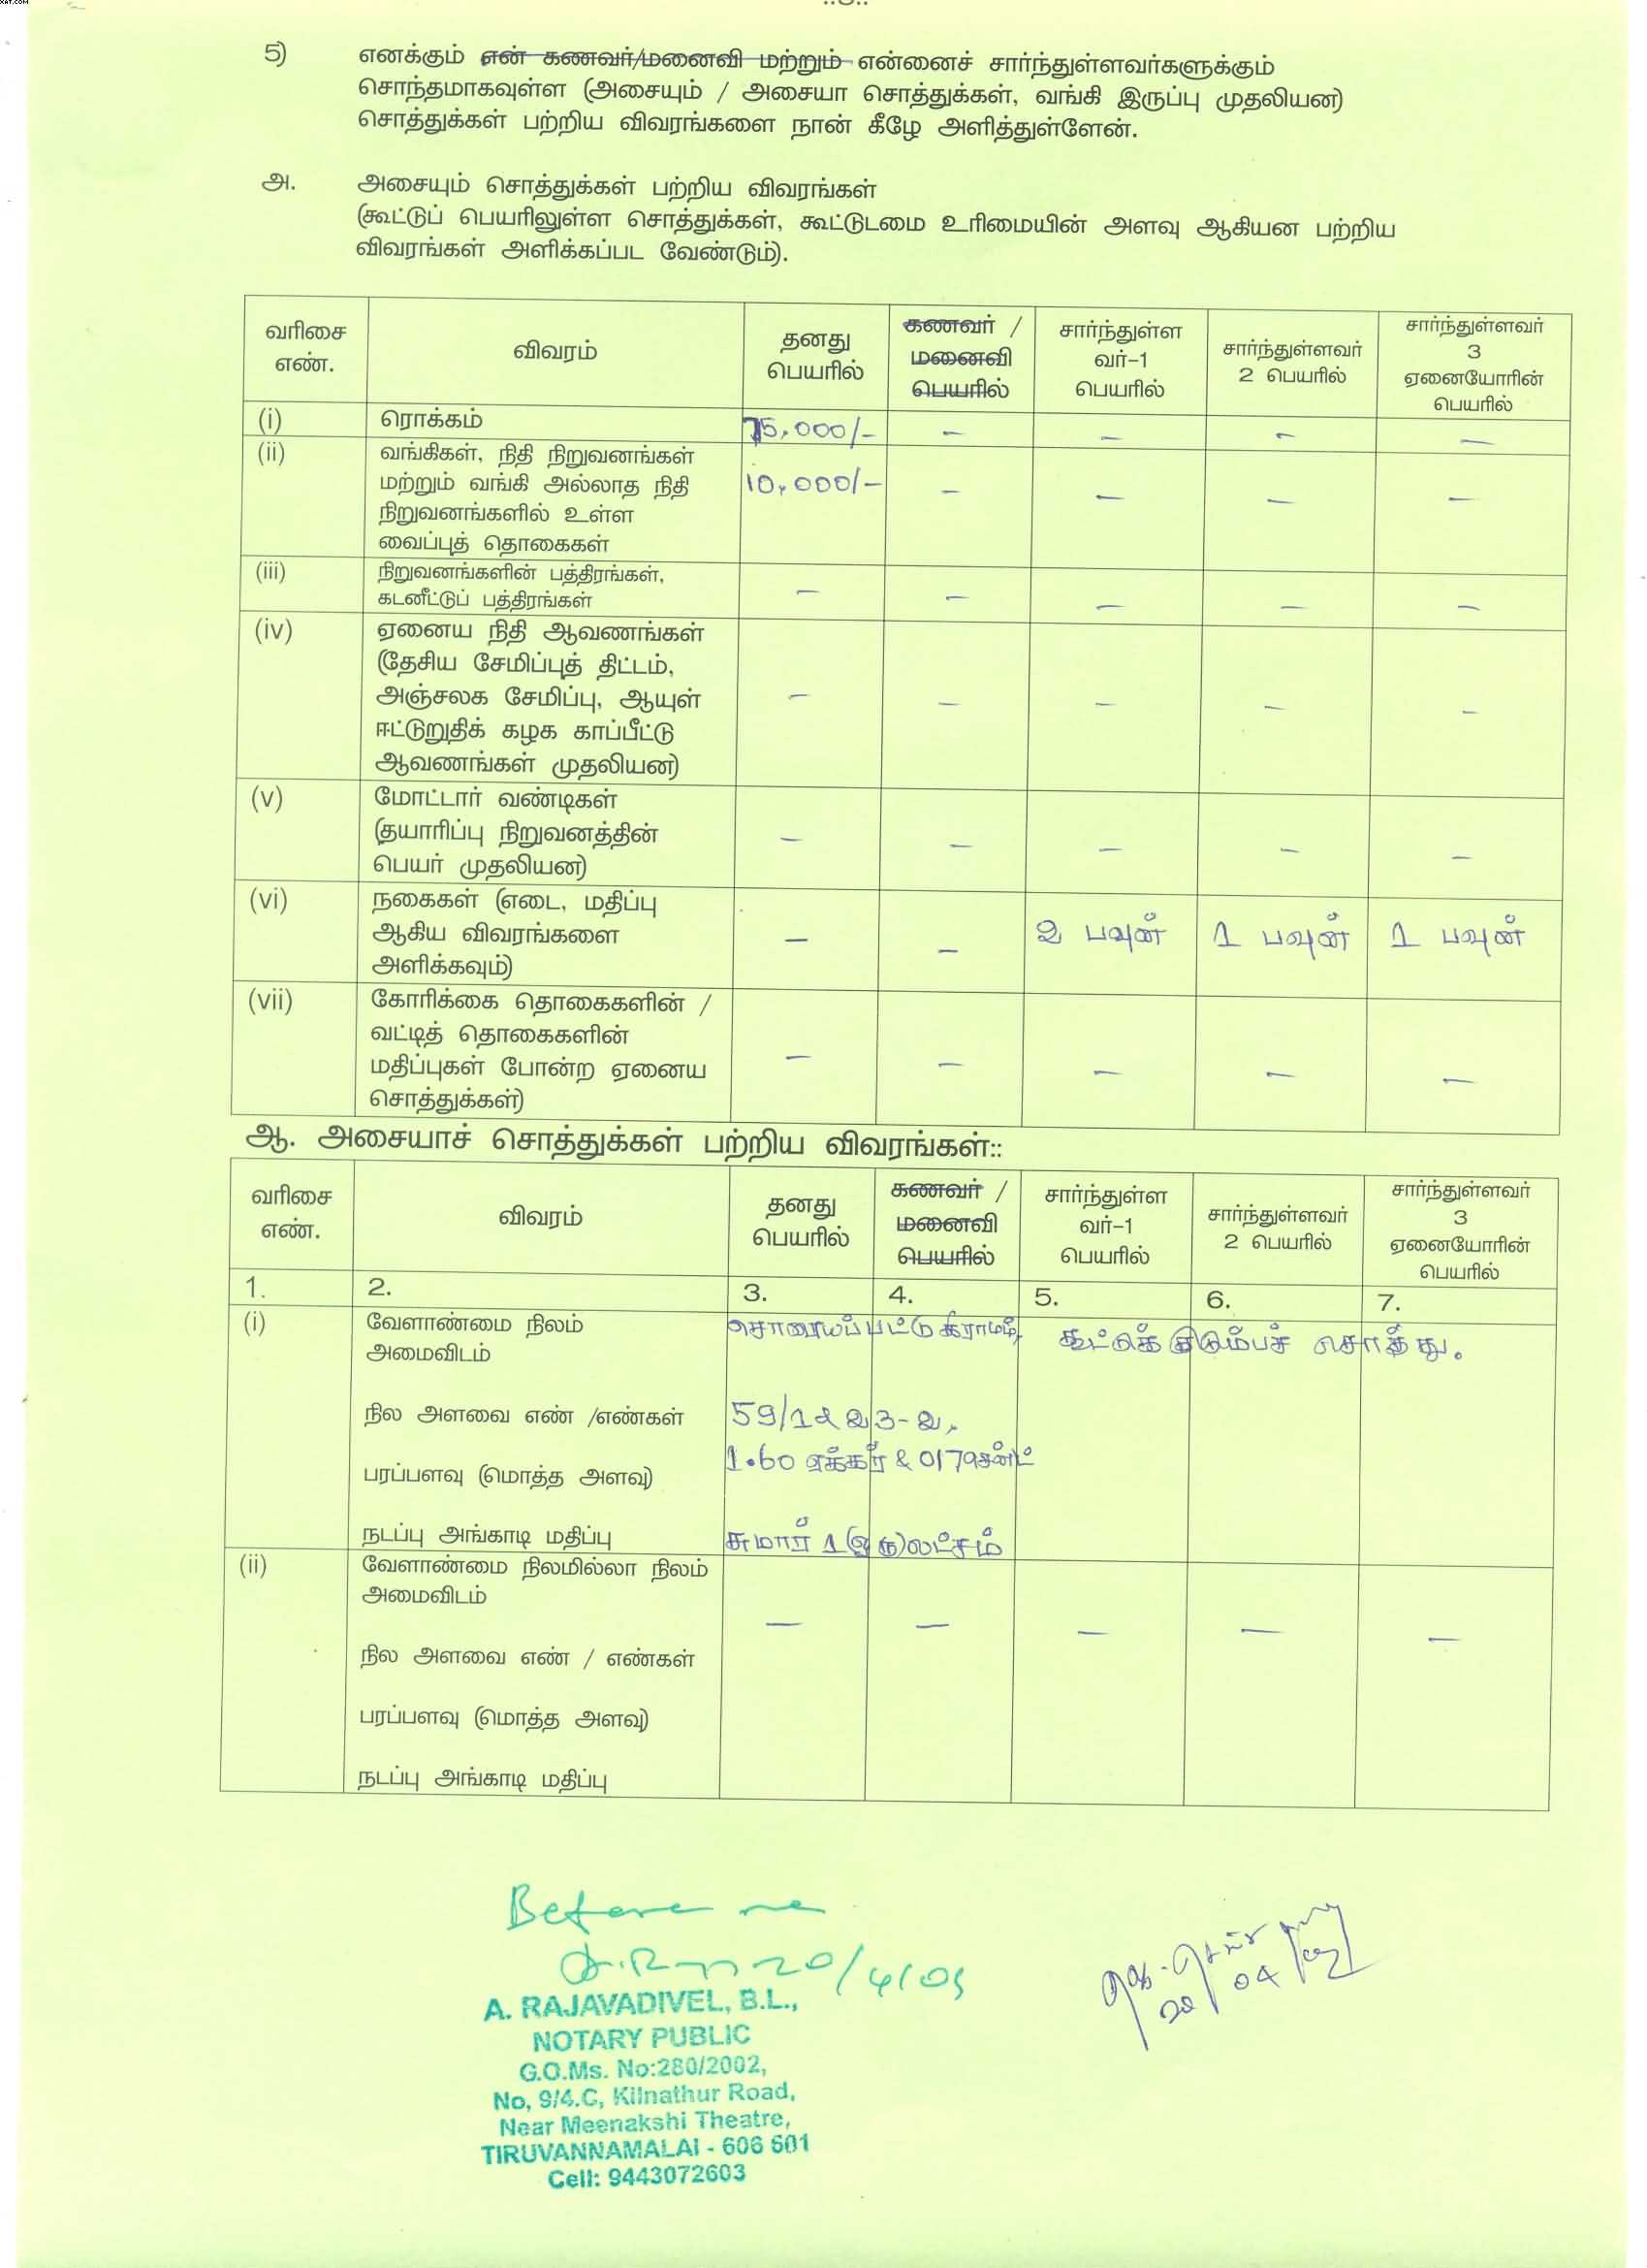 5) எனக்கும் என் கணவர்/மனைவி மற்றும் என்னைச் சார்ந்துள்ளவர்களுக்கும்
சொந்தமாகவுள்ள (அசையும் / அசையா சொத்துக்கள், வங்கி இருப்பு முதலியன)
சொத்துக்கள் பற்றிய விவரங்களை நான் கீழே அளித்துள்ளேன்.
அ. அசையும் சொத்துக்கள் பற்றிய விவரங்கள்
(கூட்டுப் பெயரிலுள்ள சொத்துக்கள், கூட்டுடமை உரிமையின் அளவு ஆகியன பற்றிய
விவரங்கள் அளிக்கப்பட வேண்டும்).
வரிசை
எண்.
விவரம்
தனது
பெயரில்
கணவர் /
மனைவி
பெயரில்
சார்ந்துள்ள
வர்-1
பெயரில்
சார்ந்துள்ளவர்
2 பெயரில்
சார்ந்துள்ளவர்
3
ஏனையோரின்
பெயரில்
(i) ரொக்கம் 15,000/- – – – –
(ii) வங்கிகள், நிதி நிறுவனங்கள்
மற்றும் வங்கி அல்லாத நிதி 10,000/- – – – –
நிறுவனங்களில் உள்ள
வைப்புத் தொகைகள்
(iii) நிறுவனங்களின் பத்திரங்கள்,
கடனீட்டுப் பத்திரங்கள் – – – – –
(iv) ஏனைய நிதி ஆவணங்கள்
(தேசிய சேமிப்புத் திட்டம்,
அஞ்சலக சேமிப்பு, ஆயுள் – – – – –
ஈட்டுறுதிக் கழக காப்பீட்டு
ஆவணங்கள் முதலியன)
(v) மோட்டார் வண்டிகள்
(தயாரிப்பு நிறுவனத்தின் – – – – –
பெயர் முதலியன)
(vi) நகைகள் (எடை, மதிப்பு
ஆகிய விவரங்களை – – 2 பவுன் 1 பவுன் 1 பவுன்
அளிக்கவும்)
(vii) கோரிக்கை தொகைகளின் /
வட்டித் தொகைகளின்
மதிப்புகள் போன்ற ஏனைய – – – – –
சொத்துக்கள்)
ஆ. அசையாச் சொத்துக்கள் பற்றிய விவரங்கள்::
வரிசை
எண்.
விவரம்
தனது
பெயரில்
கணவர் /
மனைவி
பெயரில்
சார்ந்துள்ள
வர்-1
பெயரில்
சார்ந்துள்ளவர்
2 பெயரில்
சார்ந்துள்ளவர்
3
ஏனையோரின்
பெயரில்
1. 2. 3. 4. 5. 6. 7.
(i) வேளாண்மை நிலம் கிராமம், கூட்டுக் குடும்பச் சொத்து.
அமைவிடம்
நில அளவை எண் /எண்கள் 59/1&
பரப்பளவு (மொத்த அளவு) 1.60 ஏக்கர் &
நடப்பு அங்காடி மதிப்பு சுமார் 1 (ஒரு) லட்சம்
(ii) வேளாண்மை நிலமில்லா நிலம்
அமைவிடம் – – – – –
நில அளவை எண் / எண்கள்
பரப்பளவு (மொத்த அளவு)
நடப்பு அங்காடி மதிப்பு
Before me
20/4/09
A. RAJAVADIVEL, B.L.,
NOTARY PUBLIC
G.O.Ms. No:280/2002,
No, 9/4.C, Kilnathur Road,
Near Meenakshi Theatre,
TIRUVANNAMALAI - 606 601
Cell: 9443072603